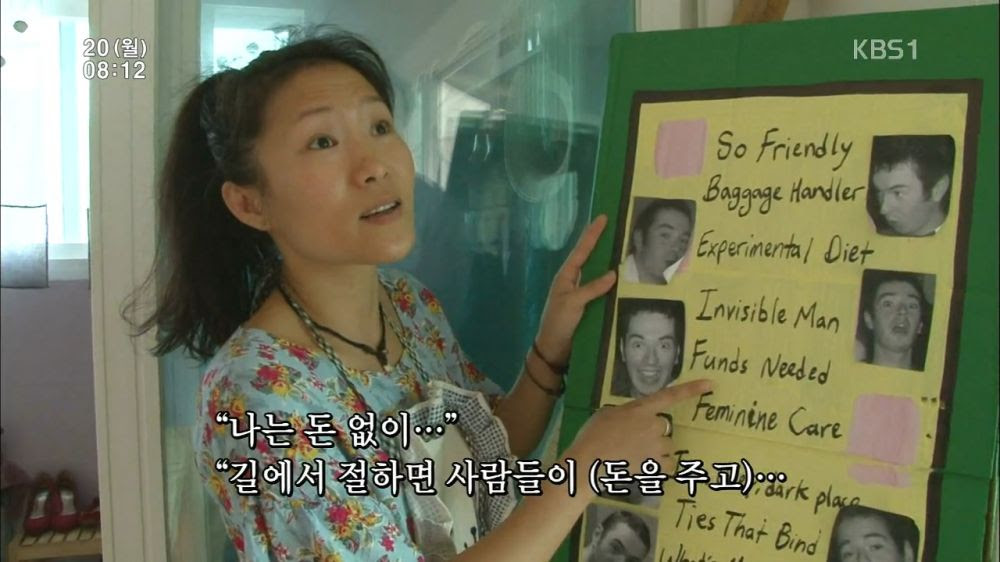 20(월)
08:12
KBS1
So Friendly
Baggage Handler
Experimental Diet
Invisible Man
Funds Needed
Feminine Care
dark place
Ties That Bind
“나는 돈 없이…”
“길에서 절하면 사람들이 (돈을 주고)…